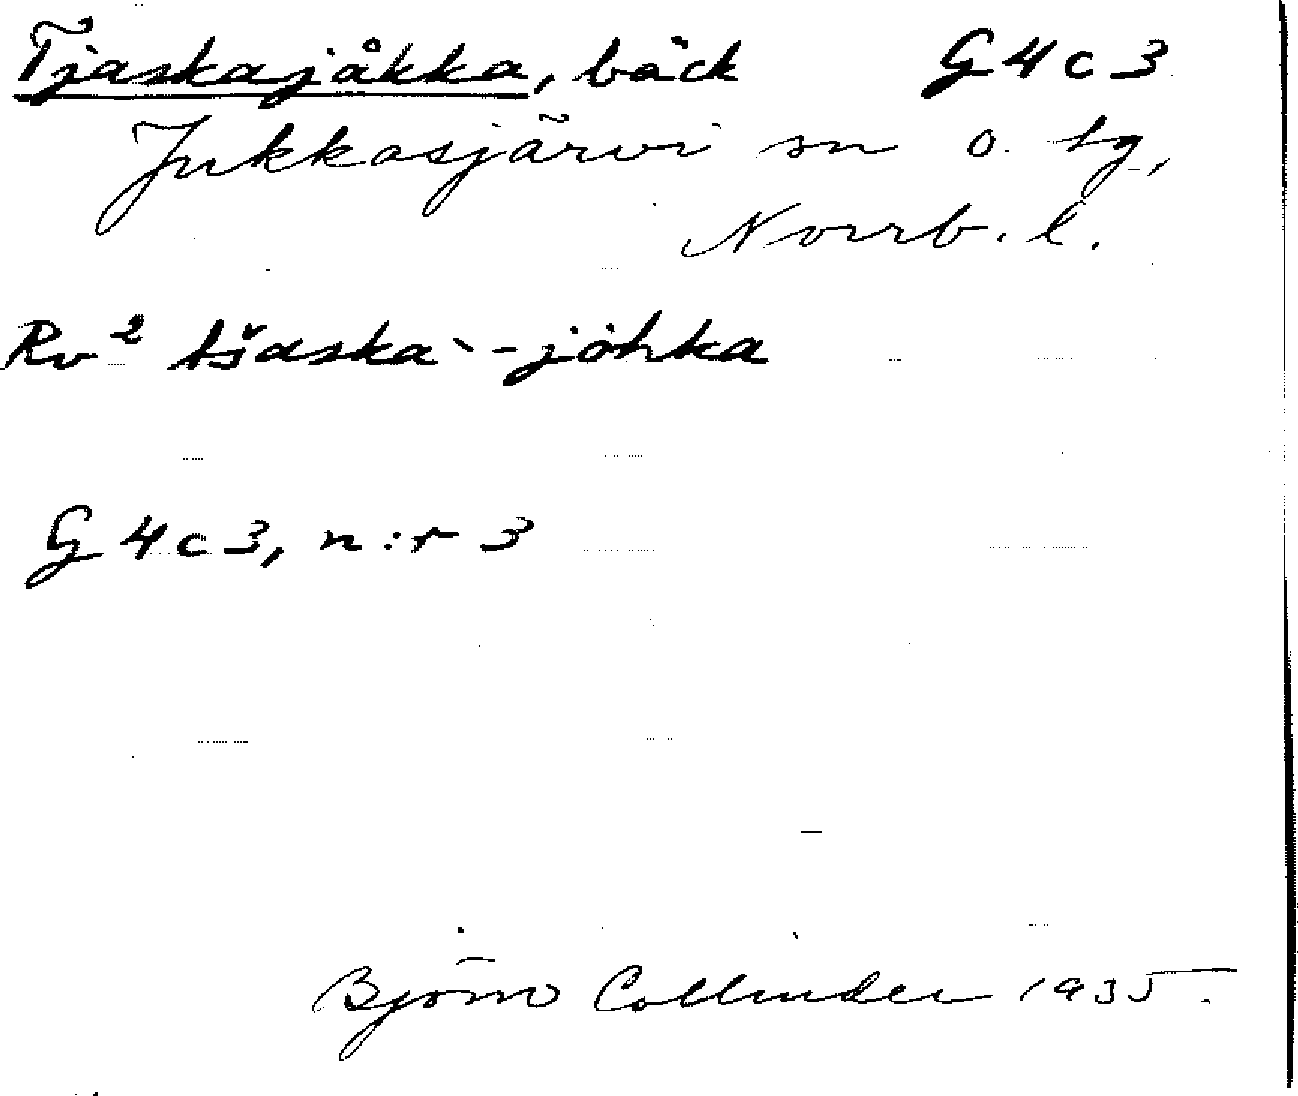 Tjaskajåkka, bäck G4c3
Jukkasjärvi sn o. tg,
Norrb. l.
Rv² tšaskaˋ-jȯhka
G4c3, n:r 3
Björn Collinder 1935.